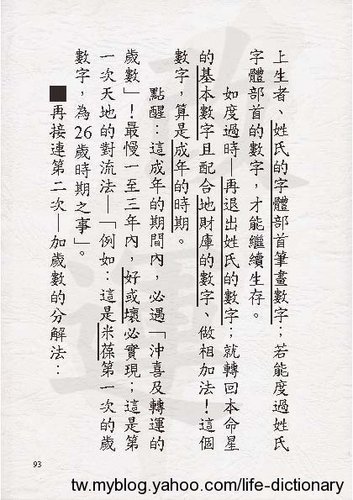 上生者、姓氏的字體部首筆畫數字；若能度過姓氏
字體部首的數字，才能繼續生存。
如度過時—再退出姓氏的數字；就轉回本命星
的基本數字且配合地財庫的數字、做相加法！這個
數字，算是成年的時期。
點醒：這成年的期間內，必遇「沖喜及轉運的
歲數」！最慢一至三年內，好或壞必實現；這是第
一次天地的對流法—「例如：這是米葆第一次的歲
數字，為26歲時期之事」。
■再接連第二次—加歲數的分解法：
93
tw.myblog.yahoo.com/life-dictionary